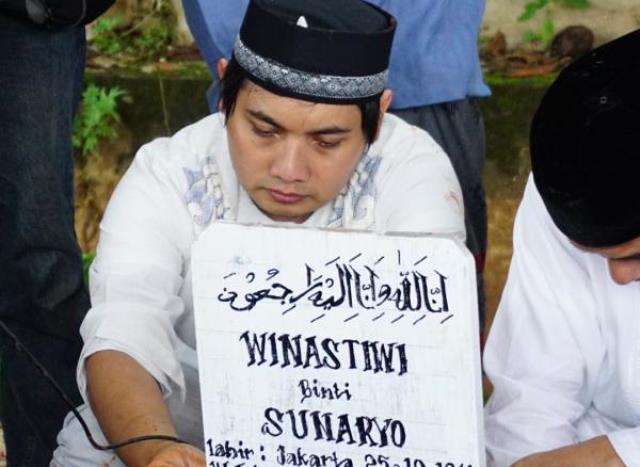 اِنَّا لِلّٰهِ وَاِنَّا اِلَيْهِ رَاجِعُوْنَ
WINASTIWI
Binti
SUNARYO
Lahir : Jakarta 25-10-